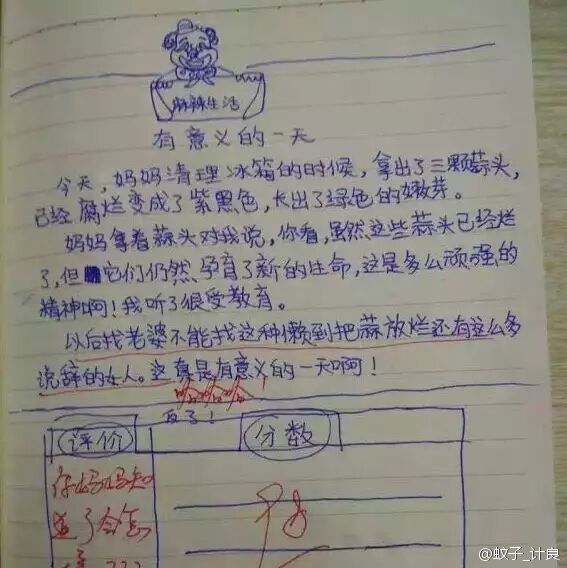 麻辣生活
有意义的一天
今天,妈妈清理冰箱的时候,拿出了三颗蒜头,
已经腐烂变成了紫黑色,长出了绿色的嫩芽。
妈妈拿着蒜头对我说,你看,虽然这些蒜头已经烂
了,但它们仍然孕育了新的生命,这是多么顽强的
精神啊!我听了很受教育。
以后找老婆不能找这种懒到把蒜放烂还有这么多
说辞的女人。这真是有意义的一天啊!
哈哈哈!
评价
分数
你妈妈知
道了会怎
???
@蚊子_计良